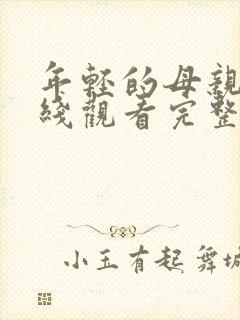 年輕的母親
綫觀看完整
小玉有起舞城